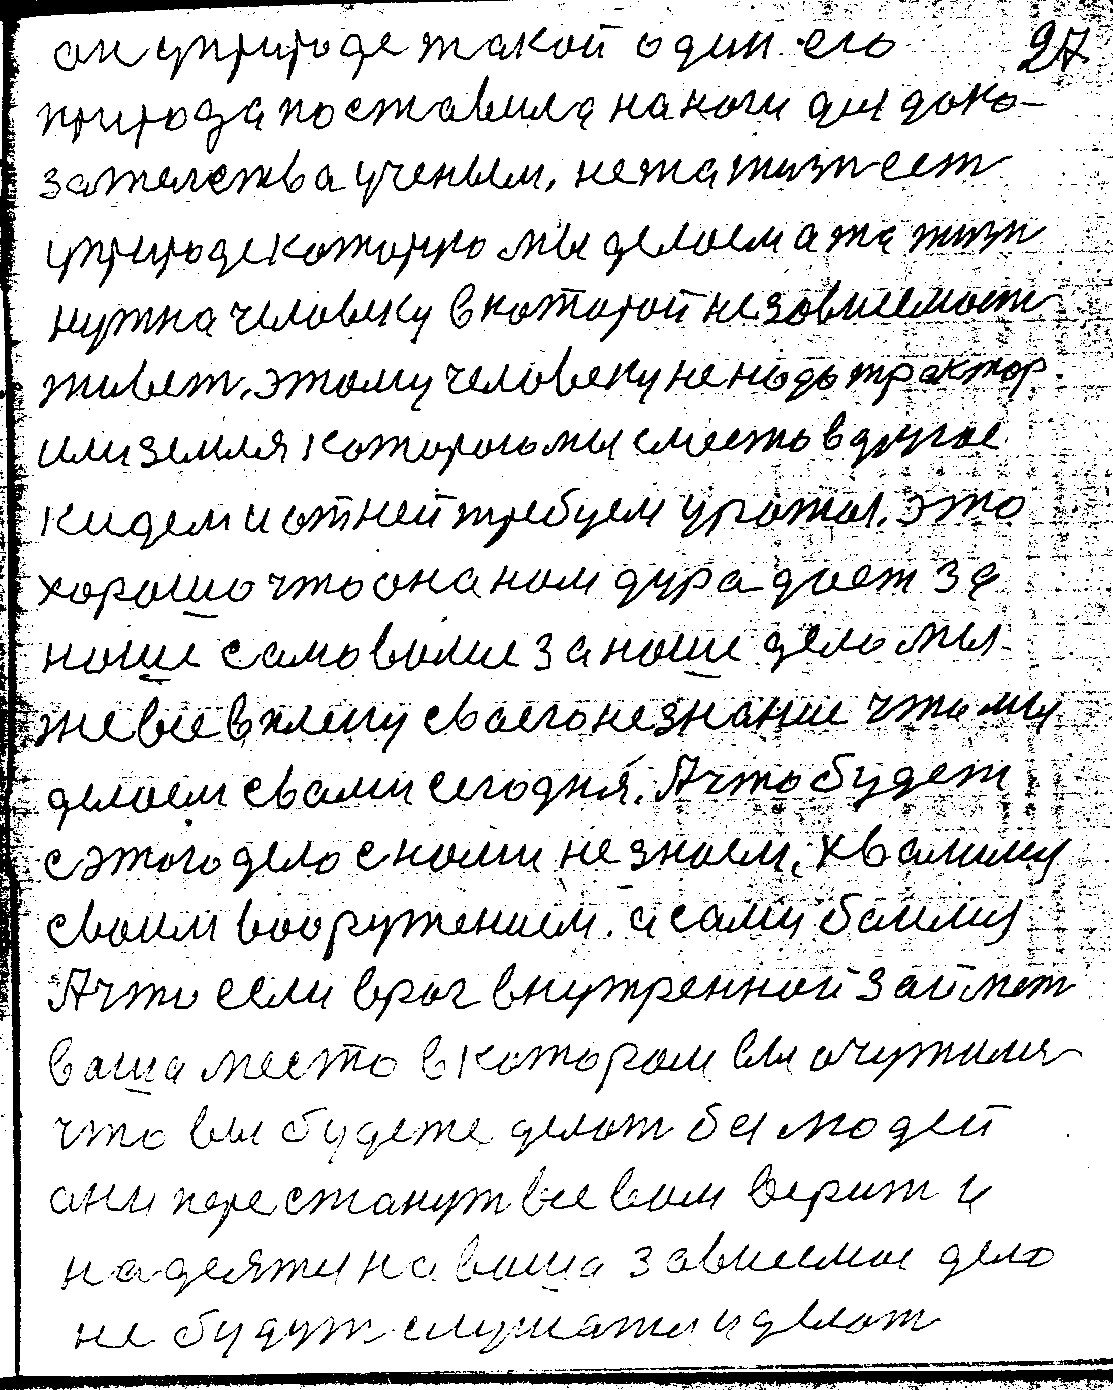 он у природе такой один его 27
природа поставила на ноги для дока-
зателства ученым, не та жизн ест
у природе которую мы делоем а та жизн
нужна человеку в которой независемост
живет. этому человеку не надо трактор.
или земля которого мы с место в другое
кидем и от ней требуем урожая. это
хорошо что она ном дура дает за
ноши самоволие за наши дело мы-
же все в плену своего незнание что мы
делоем свами сегодня. А что будет
с этого дело с номи не знаем, хвалимся
своим вооружением. а сами боимся
А что если враг внутренной займет
ваша место в котором вы очутилис
что вы будете делат без людей
они перестанут все вам верит и
надеятся на ваша зависемое дело
не будут слушатся и делат